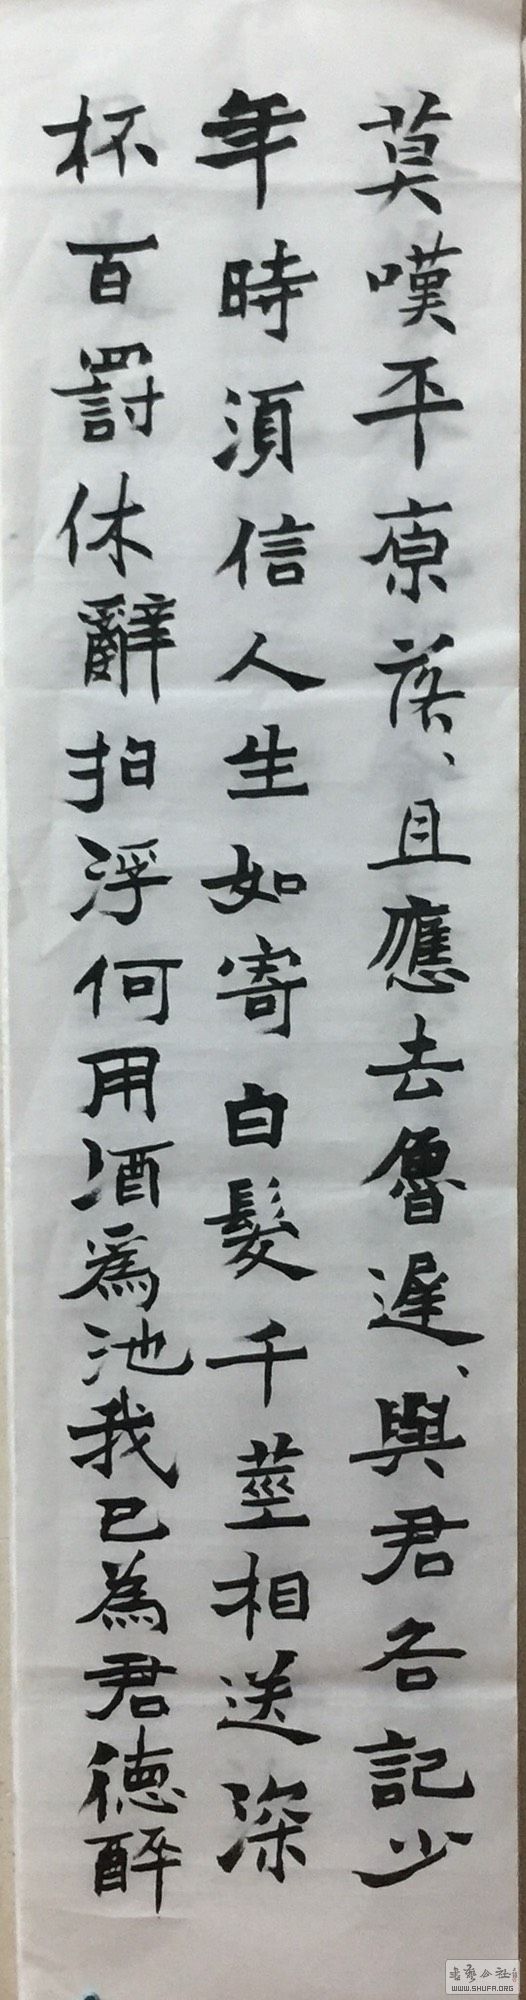 莫嘆平原落、且應去魯遲、與君各記少
年時須信人生如寄白髮千莖相送深
杯百罰休辭拍浮何用酒為池我已為君德醉
WWW.SHUFA.ORG